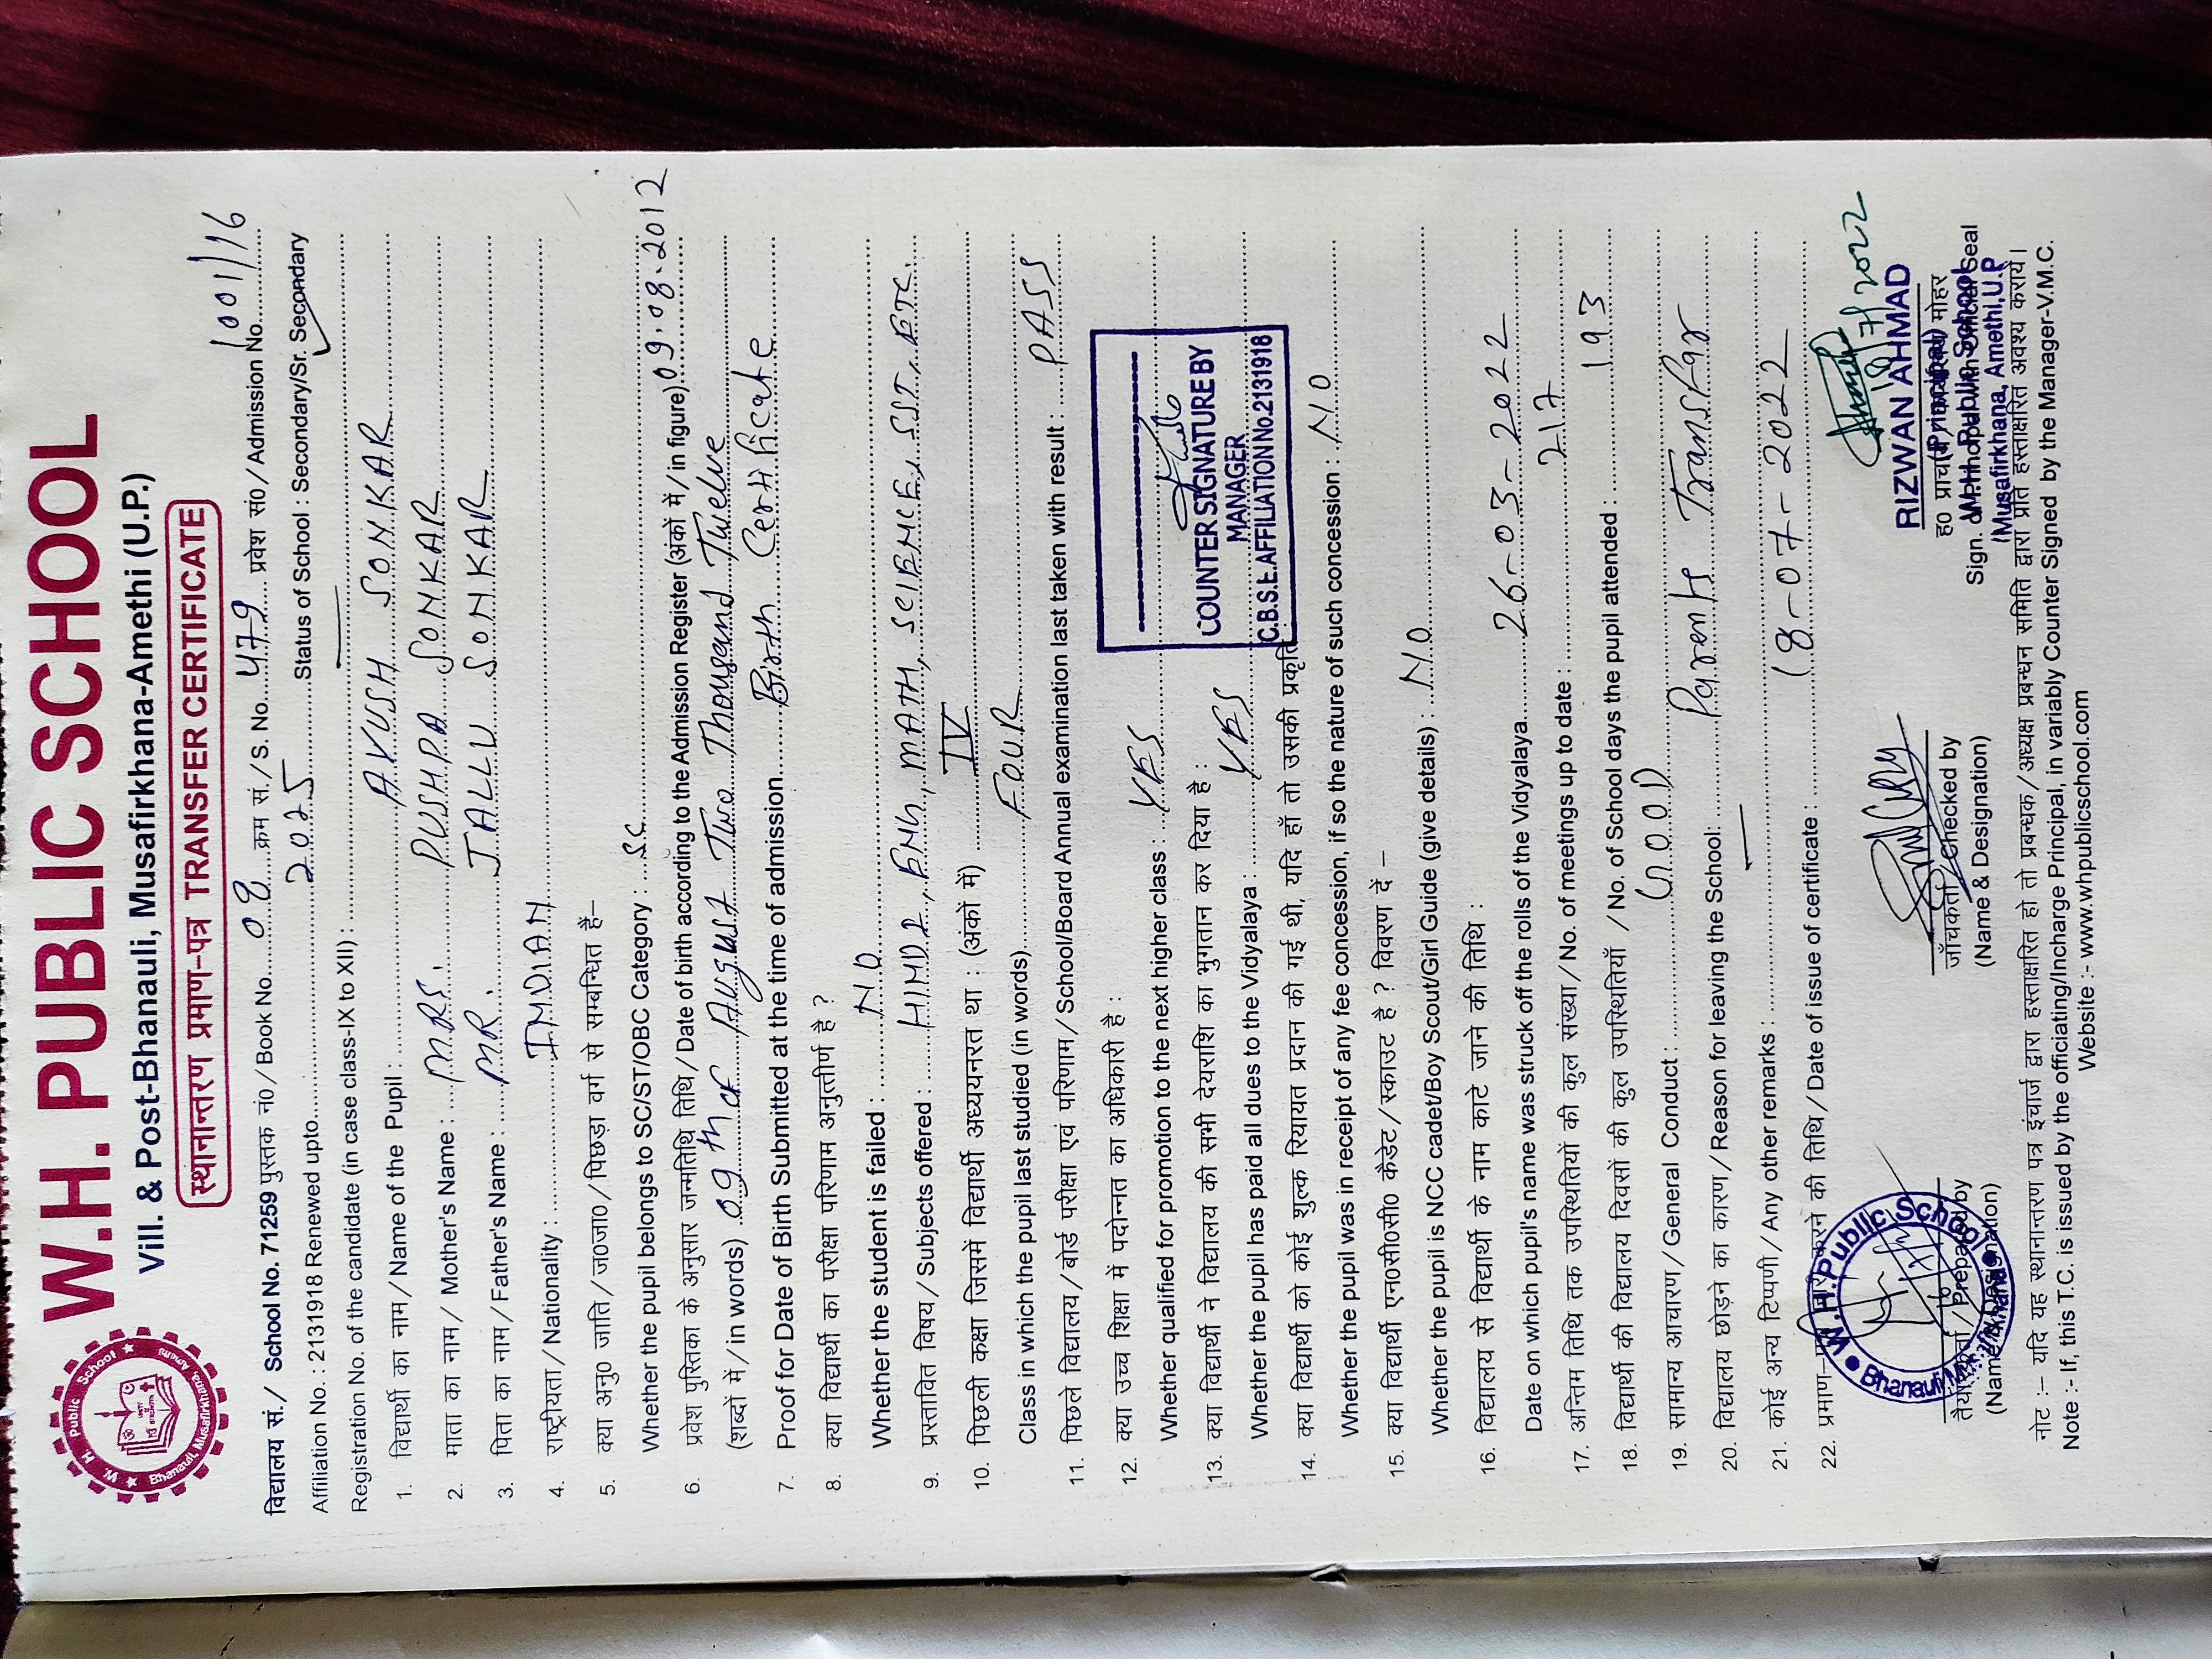 W.H. PUBLIC SCHOOL
Vill. & Post-Bhanauli, Musafirkhana-Amethi (U.P.)
स्थानान्तरण प्रमाण-पत्र TRANSFER CERTIFICATE
W. H. Public School
Bhanauli, Musafirkhana, Amethi
विद्यालय सं./ School No. 71259 पुस्तक नं०/Book No. 09 क्रम सं./S. No. 479 प्रवेश सं०/Admission No. 1001/16
Affiliation No. : 2131918 Renewed upto 2025 Status of School : Secondary/Sr. Secondary
Registration No. of the candidate (in case class-IX to XII) : —
1. विद्यार्थी का नाम/Name of the Pupil : AYUSH SONKAR
2. माता का नाम/Mother's Name : MRS. PUSHPA SONKAR
3. पिता का नाम/Father's Name : MR. JALLU SONKAR
4. राष्ट्रीयता/Nationality : INDIAN
5. क्या अनु० जाति/ज०जा०/पिछड़ा वर्ग से सम्बन्धित है–
Whether the pupil belongs to SC/ST/OBC Category : SC
6. प्रवेश पुस्तिका के अनुसार जन्मतिथि तिथि/Date of birth according to the Admission Register (अंकों में/in figure) 09.08.2012
(शब्दों में/in words) 09th of August Two Thousand Twelve
7. Proof for Date of Birth Submitted at the time of admission Birth Certificate
8. क्या विद्यार्थी का परीक्षा परिणाम अनुत्तीर्ण है ?
Whether the student is failed : NO
9. प्रस्तावित विषय/Subjects offered : HINDI, ENG, MATH, SCIENCE, SST, ETC.
10. पिछली कक्षा जिसमें विद्यार्थी अध्ययनरत था : (अंकों में) IV
Class in which the pupil last studied (in words) FOUR
11. पिछले विद्यालय/बोर्ड परीक्षा एवं परिणाम/School/Board Annual examination last taken with result : PASS
12. क्या उच्च शिक्षा में पदोन्नत का अधिकारी है :
Whether qualified for promotion to the next higher class : YES
13. क्या विद्यार्थी ने विद्यालय की सभी देयराशि का भुगतान कर दिया है :
Whether the pupil has paid all dues to the Vidyalaya : YES
COUNTER SIGNATURE BY
MANAGER
C.B.S.E. AFFILIATION No.2131918
14. क्या विद्यार्थी को कोई शुल्क रियायत प्रदान की गई थी, यदि हाँ तो उसकी प्रकृति
Whether the pupil was in receipt of any fee concession, if so the nature of such concession : NO
15. क्या विद्यार्थी एन०सी०सी० कैडेट/स्काउट है ? विवरण दें –
Whether the pupil is NCC cadet/Boy Scout/Girl Guide (give details) : NO
16. विद्यालय से विद्यार्थी के नाम काटे जाने की तिथि :
Date on which pupil's name was struck off the rolls of the Vidyalaya 26-03-2022
17. अन्तिम तिथि तक उपस्थितियों की कुल संख्या/No. of meetings up to date : 217
18. विद्यार्थी की विद्यालय दिवसों की कुल उपस्थितियाँ /No. of School days the pupil attended : 193
19. सामान्य आचारण/General Conduct : GOOD
20. विद्यालय छोड़ने का कारण/Reason for leaving the School: Parents Transfar
21. कोई अन्य टिप्पणी/Any other remarks : —
22. प्रमाण-पत्र जारी करने की तिथि/Date of issue of certificate : 18-07-2022
18/7/2022
W.H. Public School
Bhanauli
तैयारकर्ता/Prepared by
(Name & Designation)
जाँचकर्ता/Checked by
(Name & Designation)
RIZWAN AHMAD
(Principal)
W.H. Public School
Musafirkhana, Amethi, U.P
ह० प्राचार्य मोहर
Sign. of Principal with Official Seal
नोट :– यदि यह स्थानान्तरण पत्र इंचार्ज द्वारा हस्ताक्षरित हो तो प्रबन्धक/अध्यक्ष प्रबन्धन समिति द्वारा प्रति हस्ताक्षरित अवश्य करायें।
Note :- If, this T.C. is issued by the officiating/Incharge Principal, in variably Counter Signed by the Manager-V.M.C.
Website :- www.whpublicschool.com